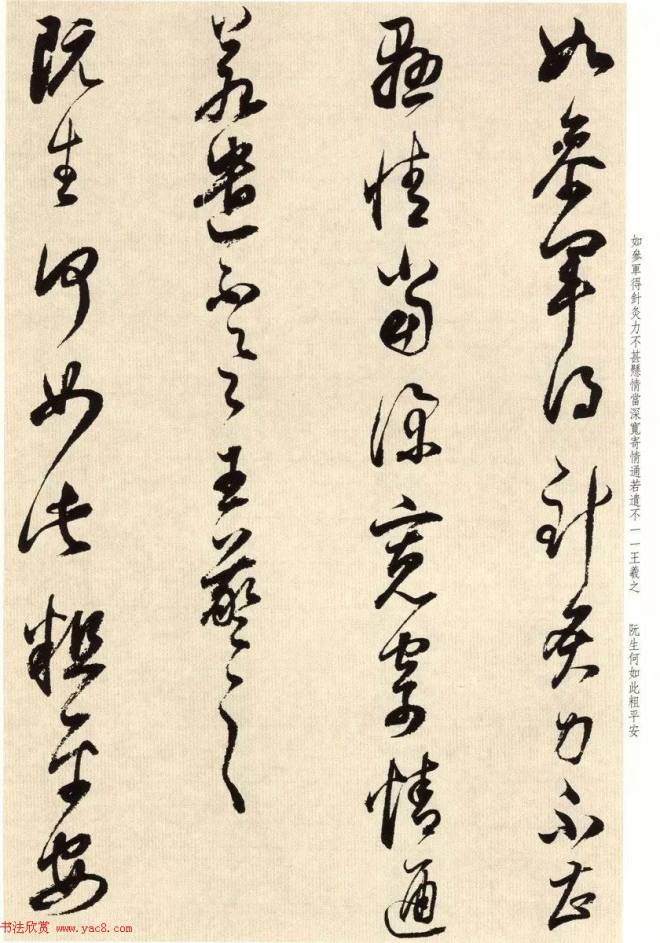 如參軍得針灸力不甚
懸情當深寬寄情通
若遣不一一王羲之
阮生何如此粗平安
如參軍得針灸力不甚懸情當深寬寄情通若遣不一一王羲之　阮生何如此粗平安
书法欣赏 www.yac8.com